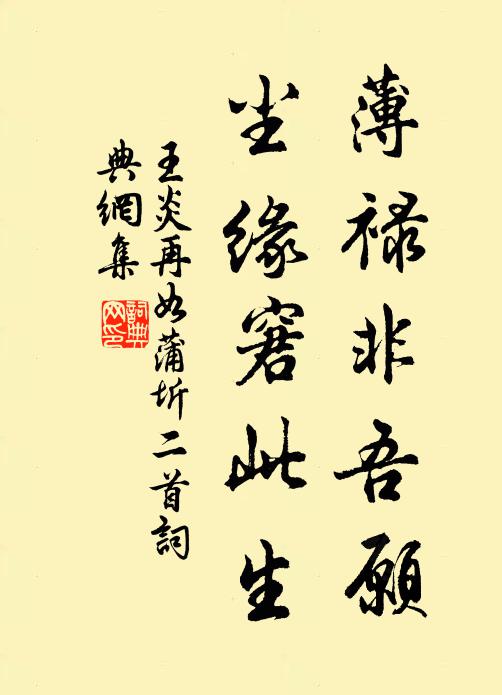 薄禄非吾愿
尘缘窘此生
王炎再如蒲圻二首詞
典網集
詞典
网印